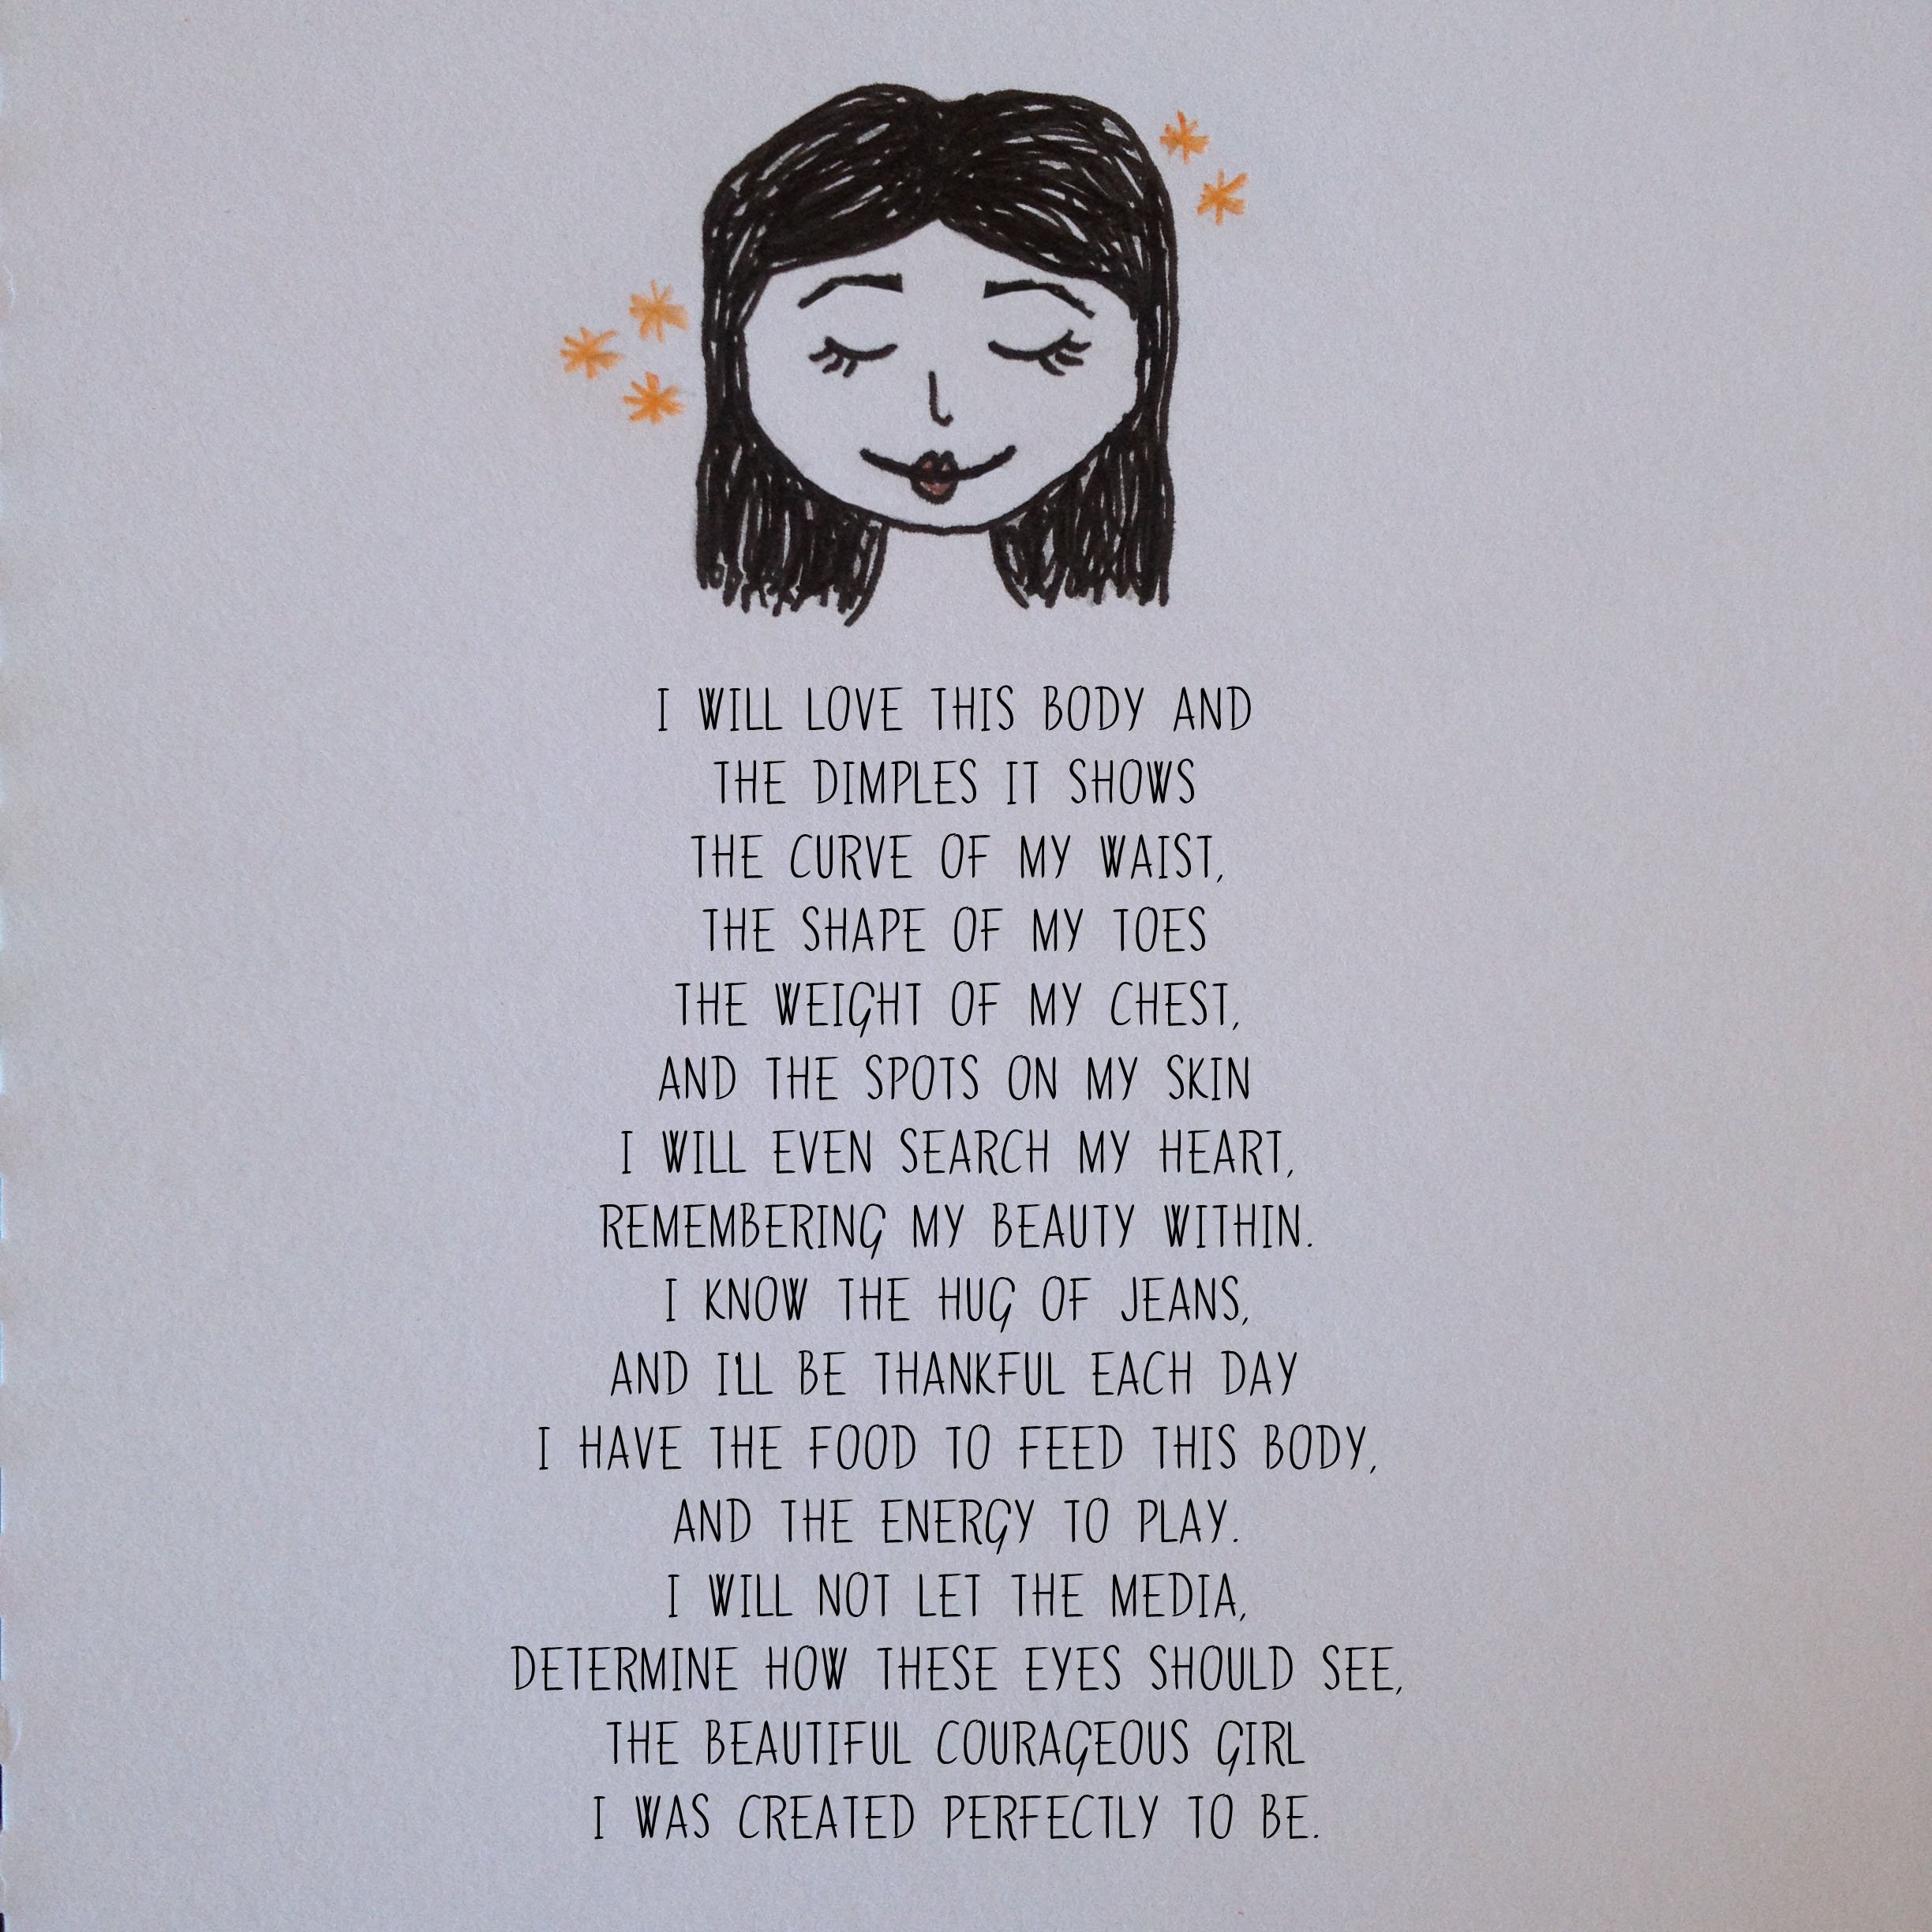 I WILL LOVE THIS BODY AND
THE DIMPLES IT SHOWS
THE CURVE OF MY WAIST,
THE SHAPE OF MY TOES
THE WEIGHT OF MY CHEST,
AND THE SPOTS ON MY SKIN
I WILL EVEN SEARCH MY HEART,
REMEMBERING MY BEAUTY WITHIN.
I KNOW THE HUG OF JEANS,
AND I'LL BE THANKFUL EACH DAY
I HAVE THE FOOD TO FEED THIS BODY,
AND THE ENERGY TO PLAY.
I WILL NOT LET THE MEDIA,
DETERMINE HOW THESE EYES SHOULD SEE,
THE BEAUTIFUL COURAGEOUS GIRL
I WAS CREATED PERFECTLY TO BE.